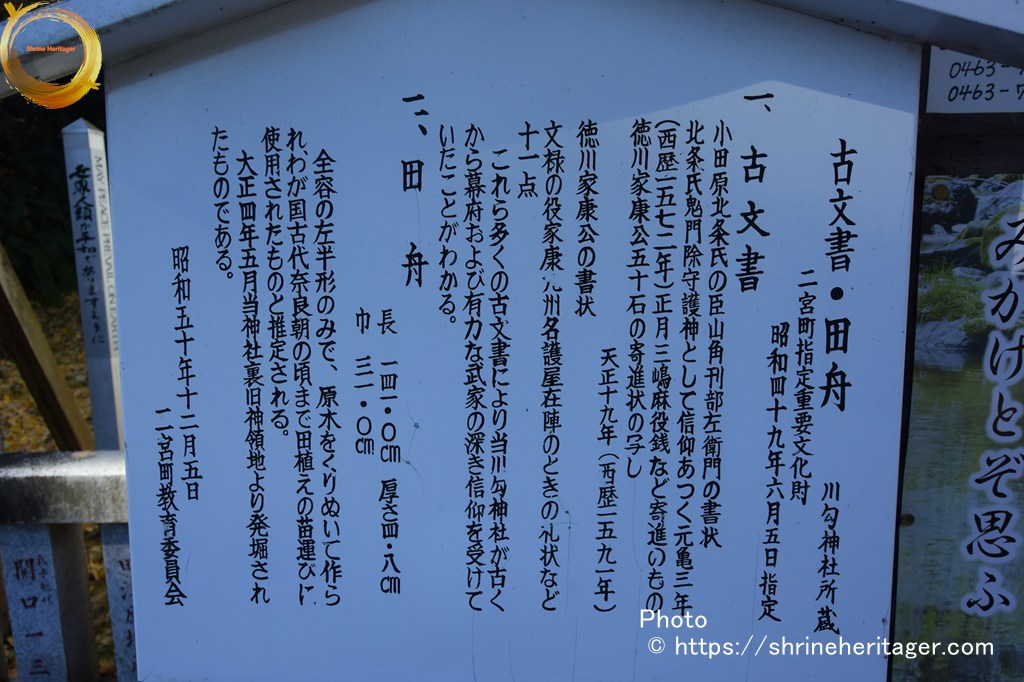 古文書・田舟　川勾神社所蔵
二宮町指定重要文化財
昭和四十九年六月五日指定
一、古文書
小田原北条氏の臣山角刑部左衛門の書状
北条氏鬼門除守護神として信仰あつく元亀三年
(西歴一五七二年)正月三嶋麻役銭など寄進のもの
徳川家康公五十石の寄進状の写し
天正十九年(西歴一五九一年)
徳川家康公の書状
文禄の役家康九州名護屋在陣のときの礼状など
十一点
これら多くの古文書により当川勾神社が古く
から幕府および有力な武家の深き信仰を受けて
いたことがわかる。
二、田舟
長 一四一・〇cm 厚さ四・八cm
巾 三一・〇cm
全容の左半形のみで、原木をくりぬいて作ら
れわが国古代奈良朝の頃まで田植えの苗運びに
使用されたものと推定される。
大正四年五月当神社裏旧神領地より発堀され
たものである。
昭和五十年十二月五日
二宮町教育委員会
0463-7
0463-7
みかけとぞ思ふ
MAY PEACE PREVAIL ON EARTH
世界人類が平和でありますように
関口一三
Shrine Heritager
Photo
© https://shrineheritager.com